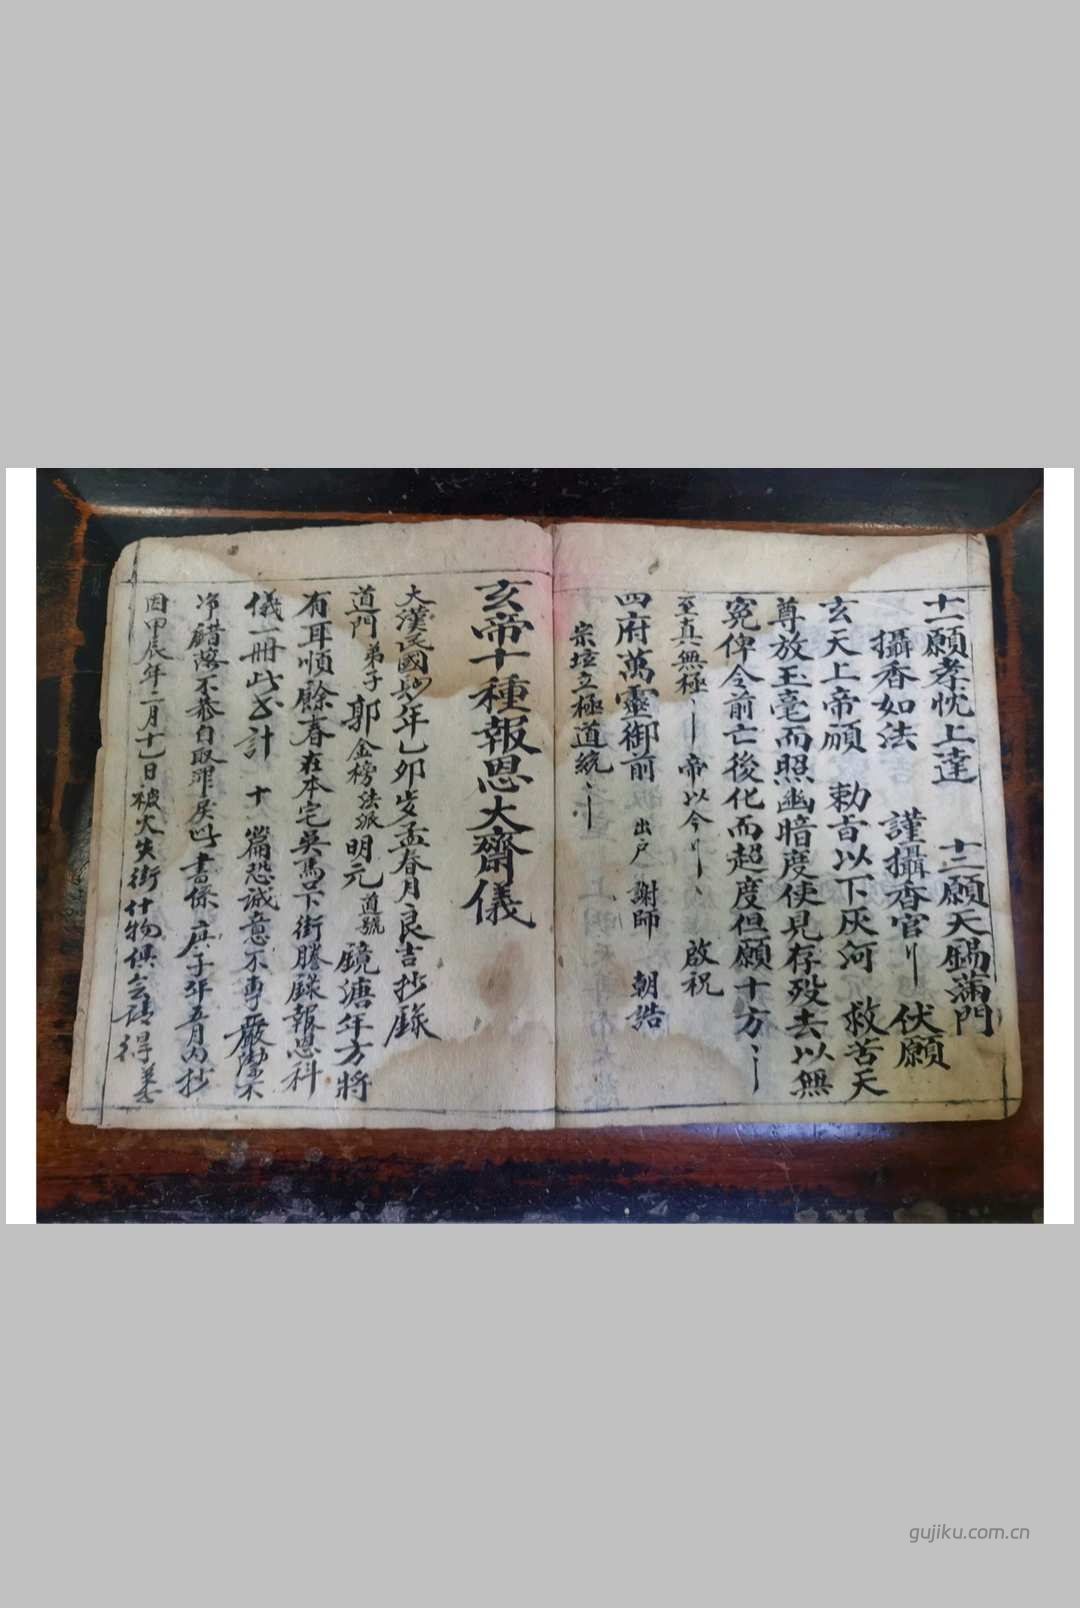 十一願孝忱上達　十二願天錫滿門
攝香如法　謹攝香官〢　伏願
玄天上帝頒　勅旨以下灰河　救苦天
尊放玉毫而照幽暗度使見存歿去以無
冤俾今前亡後化而超度但願十方
至真無極　帝以今　啟祝
四府萬靈御前　出戶　謝師　朝誥
宗壇立極道統
玄帝十種報恩大齋儀
大漢民國年乙卯歲孟春月良吉抄錄
道門弟子郭金榜法派明元道號鏡溏年方將
有耳順餘春在本宅吳馬口下街謄錄報恩科
儀一冊此書計十八篇恐誠意不專嚴潔不
净錯落不恭自取罪戾此書係庚子年五月內抄
因甲辰年二月十七日被火失街什物俱
gujiku.com.cn